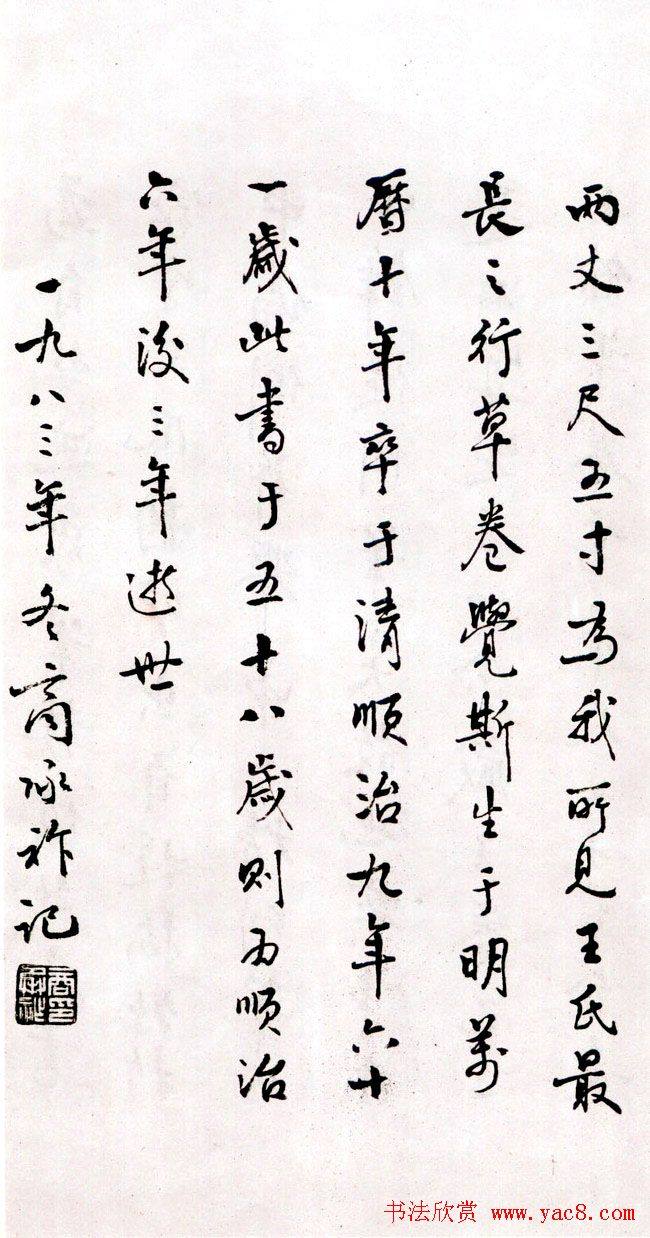 兩丈三尺五寸為我所見王氏最
長之行草卷覺斯生于明萬
曆十年卒于清順治九年六十
一歲此書于五十八歲則為順治
六年後三年逝世
一九八三年冬商承祚記
商承祚印
书法欣赏 www.yac8.com